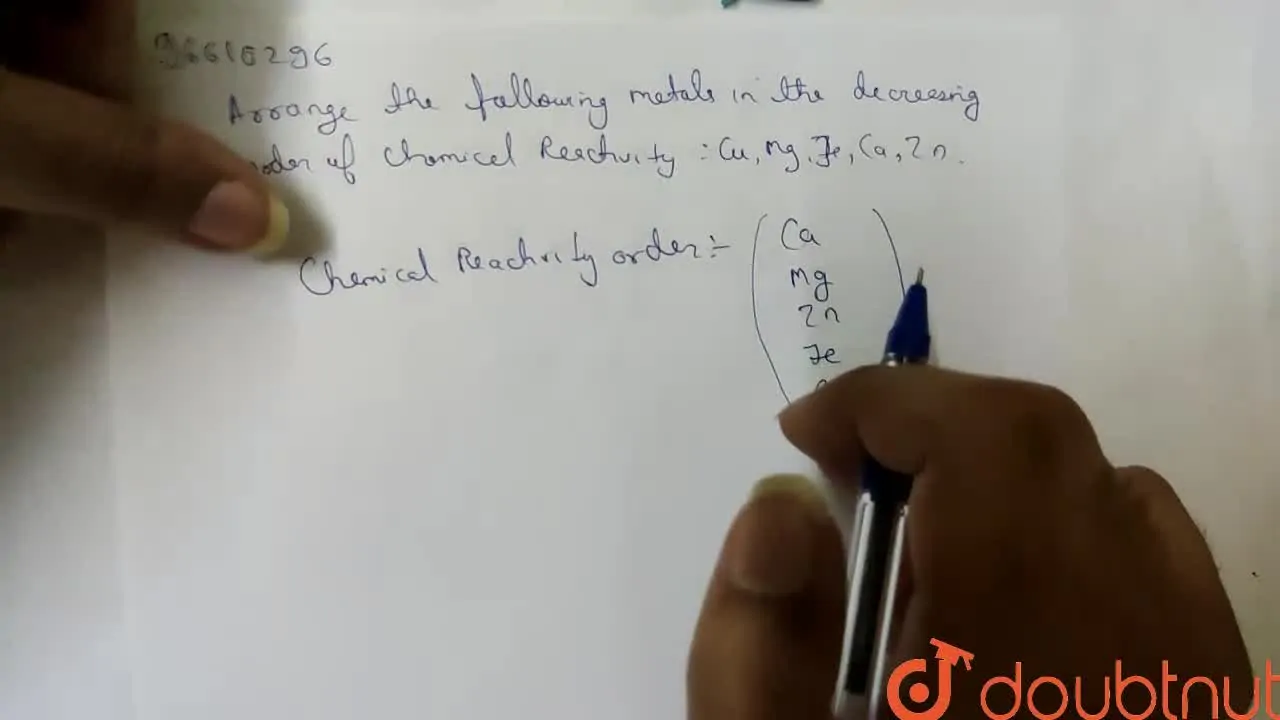 96610296
Arrange the following metals in the decreesing
order of Chemical Reactivity : Cu, Mg, Fe, Ca, Zn.
Chemical Reactivity order :-
Ca
Mg
Zn
Fe
doubtnut